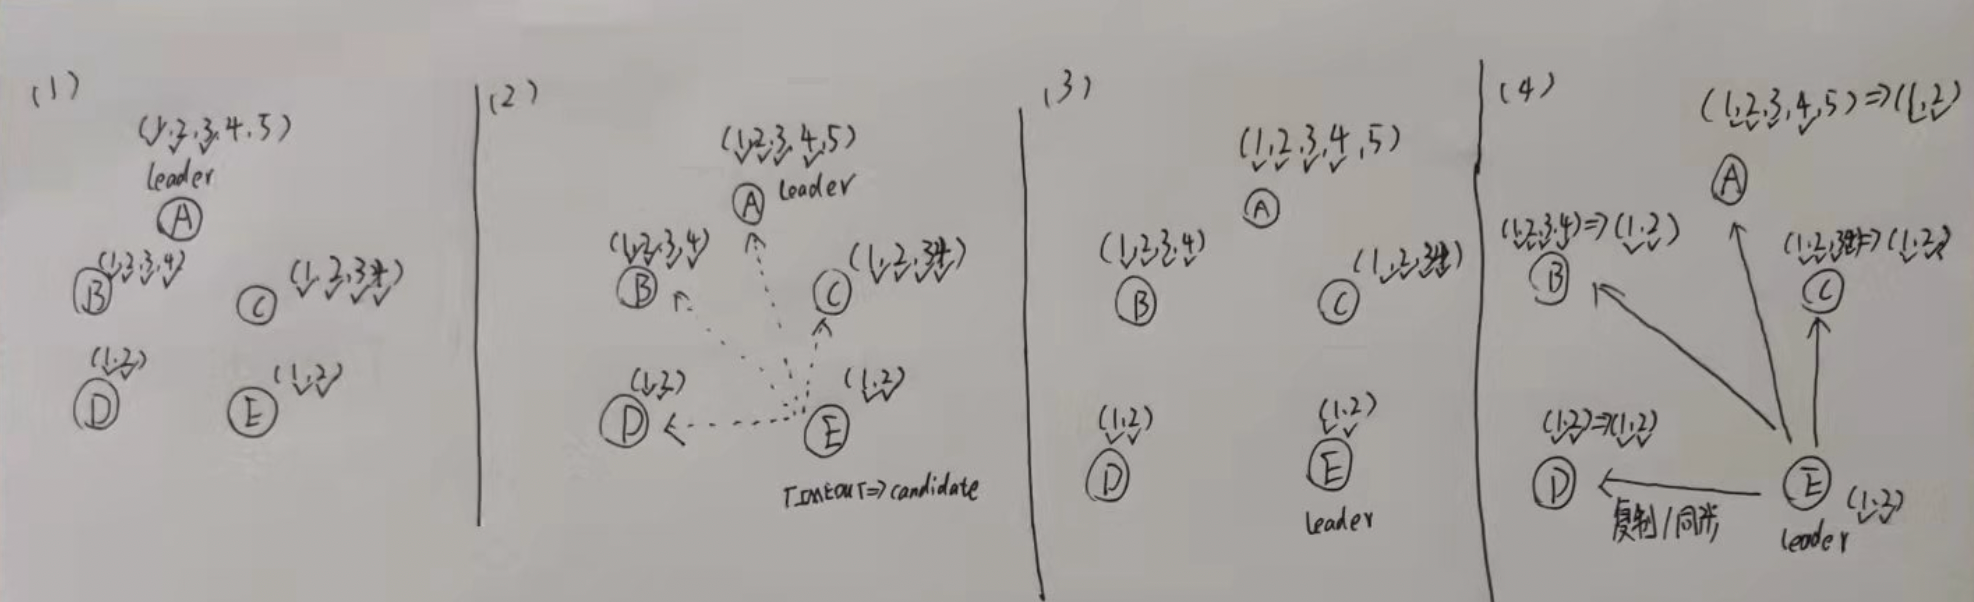 (1)
(1,2,3,4,5)
leader
A
(1,2,3,4)
B
(1,2,3,4)
C
(1,2)
D
(1,2)
E
(2)
(1,2,3,4,5)
A
leader
(1,2,3,4)
B
(1,2,3,4)
C
(1,2)
D
(1,2)
E
TIMEOUT=>candidate
(3)
(1,2,3,4,5)
A
(1,2,3,4)
B
(1,2,3,4)
C
(1,2)
D
(1,2)
E
leader
(4)
(1,2,3,4,5)=>(1,2)
A
(1,2,3,4)=>(1,2)
B
(1,2,3,4)=>(1,2)
C
(1,2)=>(1,2)
D
复制/同步
E
(1,2)
leader